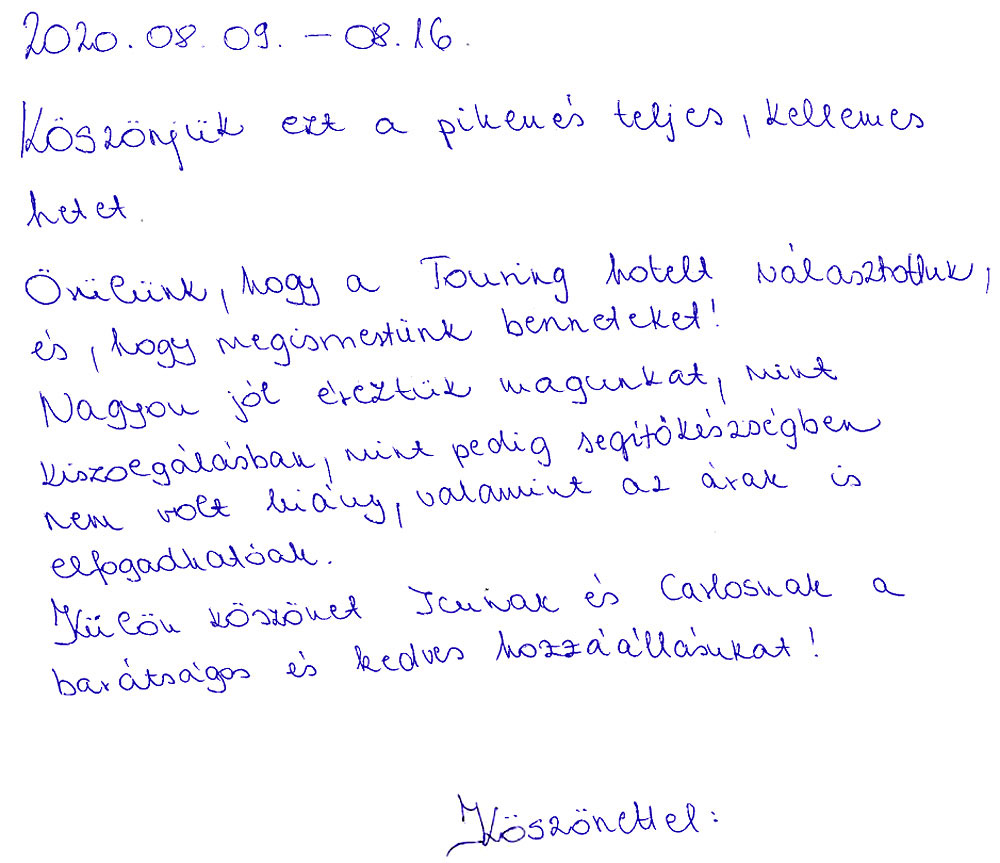 2020. 08. 09. – 08. 16.
Köszönjük ezt a pihenés teljes, kellemes
hetet.
Örülünk, hogy a Touring hotelt választottuk,
és, hogy megismertünk benneteket!
Nagyon jól éreztük magunkat, mint
kiszolgálásban, mint pedig segítőkészségben
nem volt hiány, valamint az árak is
elfogadhatóak.
Külön köszönet és Carlosnak a
barátságos és kedves hozzáállásukat!
Köszönettel: